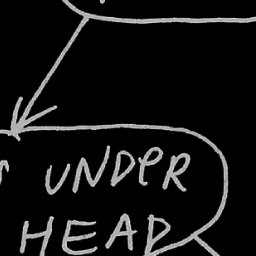 UNDER
HEAD